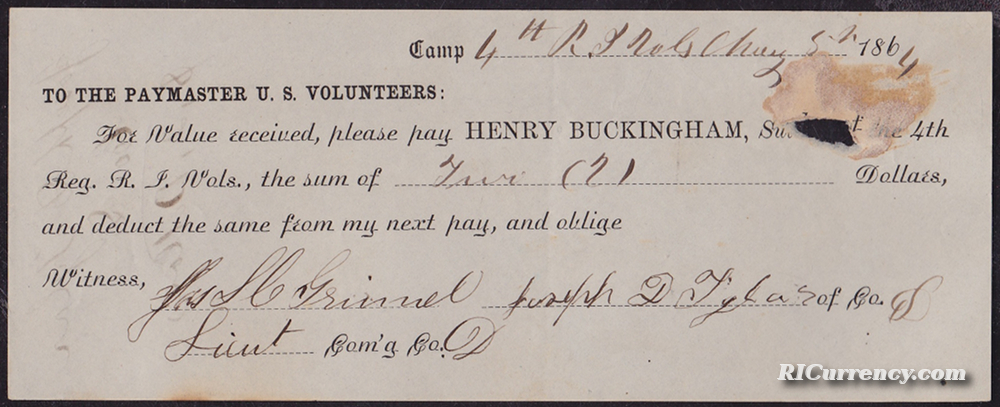 Camp 4th R I Vols May 5th 1864
TO THE PAYMASTER U. S. VOLUNTEERS:
For Value received, please pay HENRY BUCKINGHAM, the 4th
Reg. R. I. Vols., the sum of Two (2) Dollars,
and deduct the same from my next pay, and oblige
Witness,
Grinnel Joseph D of Co. D
Lieut Com'g Co. D
RICurrency.com